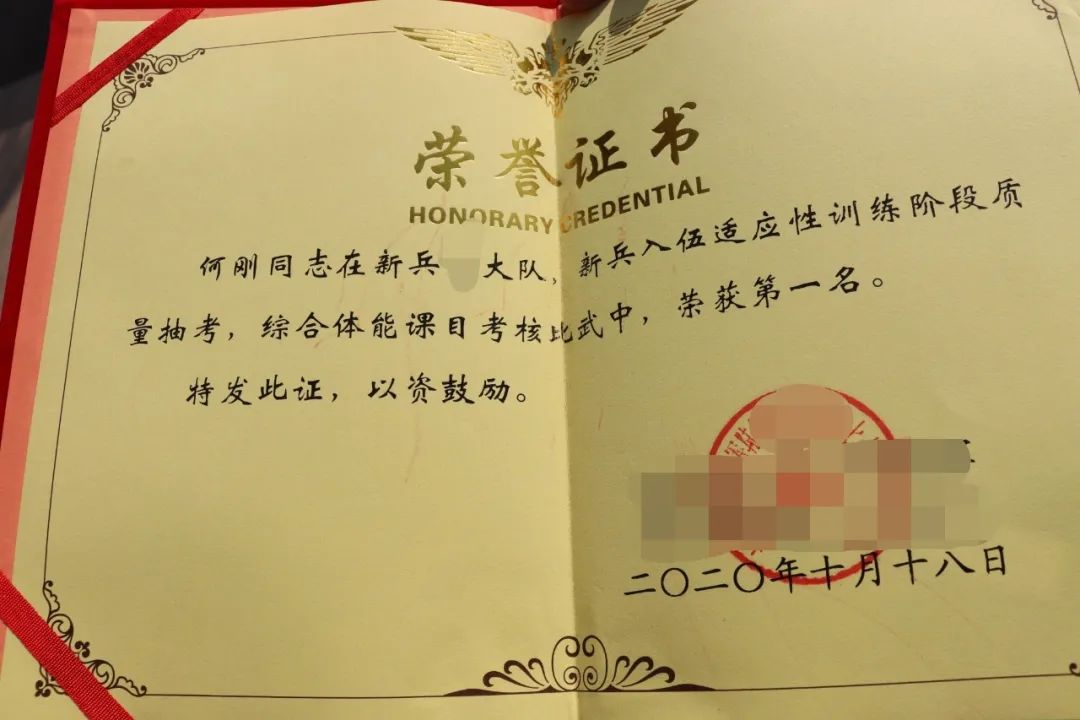 荣誉证书
HONORARY CREDENTIAL
何刚同志在新兵 大队，新兵入伍适应性训练阶段质
量抽考，综合体能课目考核比武中，荣获第一名。
特发此证，以资鼓励。
二〇二〇年十月十八日